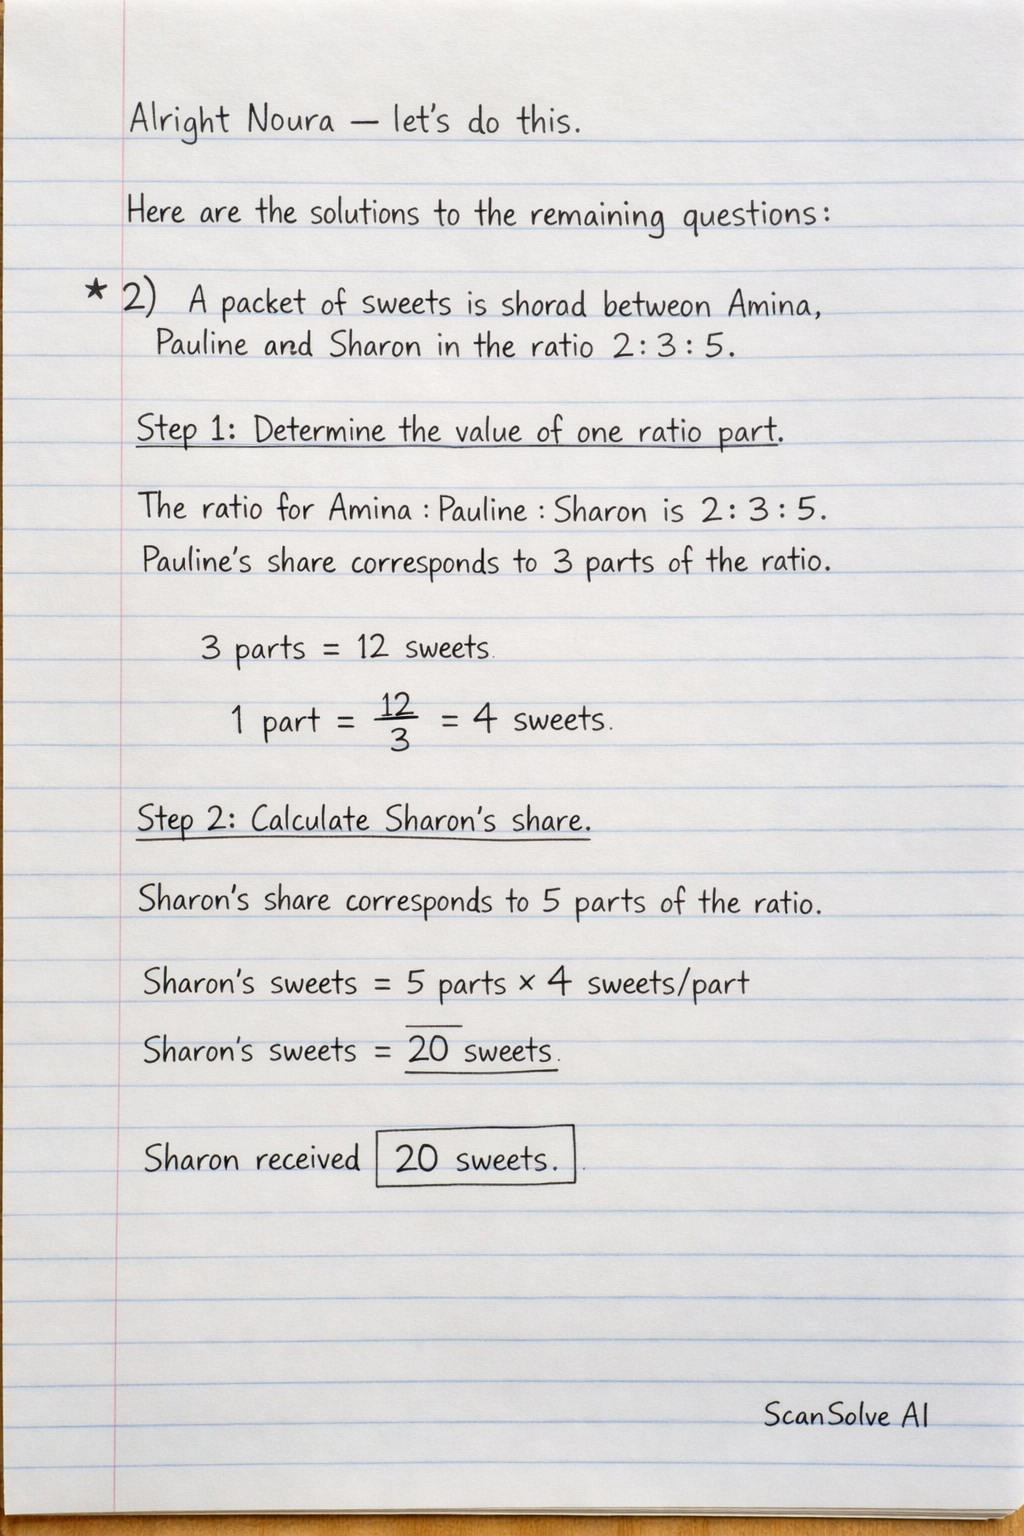 Alright Noura — let's do this.
Here are the solutions to the remaining questions:
★ 2) A packet of sweets is shorad betweon Amina,
Pauline and Sharon in the ratio 2 : 3 : 5.
Step 1: Determine the value of one ratio part.
The ratio for Amina : Pauline : Sharon is 2 : 3 : 5.
Pauline's share corresponds to 3 parts of the ratio.
3 parts = 12 sweets.
1 part = 12/3 = 4 sweets.
Step 2: Calculate Sharon's share.
Sharon's share corresponds to 5 parts of the ratio.
Sharon's sweets = 5 parts × 4 sweets/part
Sharon's sweets = 20 sweets.
Sharon received 20 sweets.
ScanSolve AI